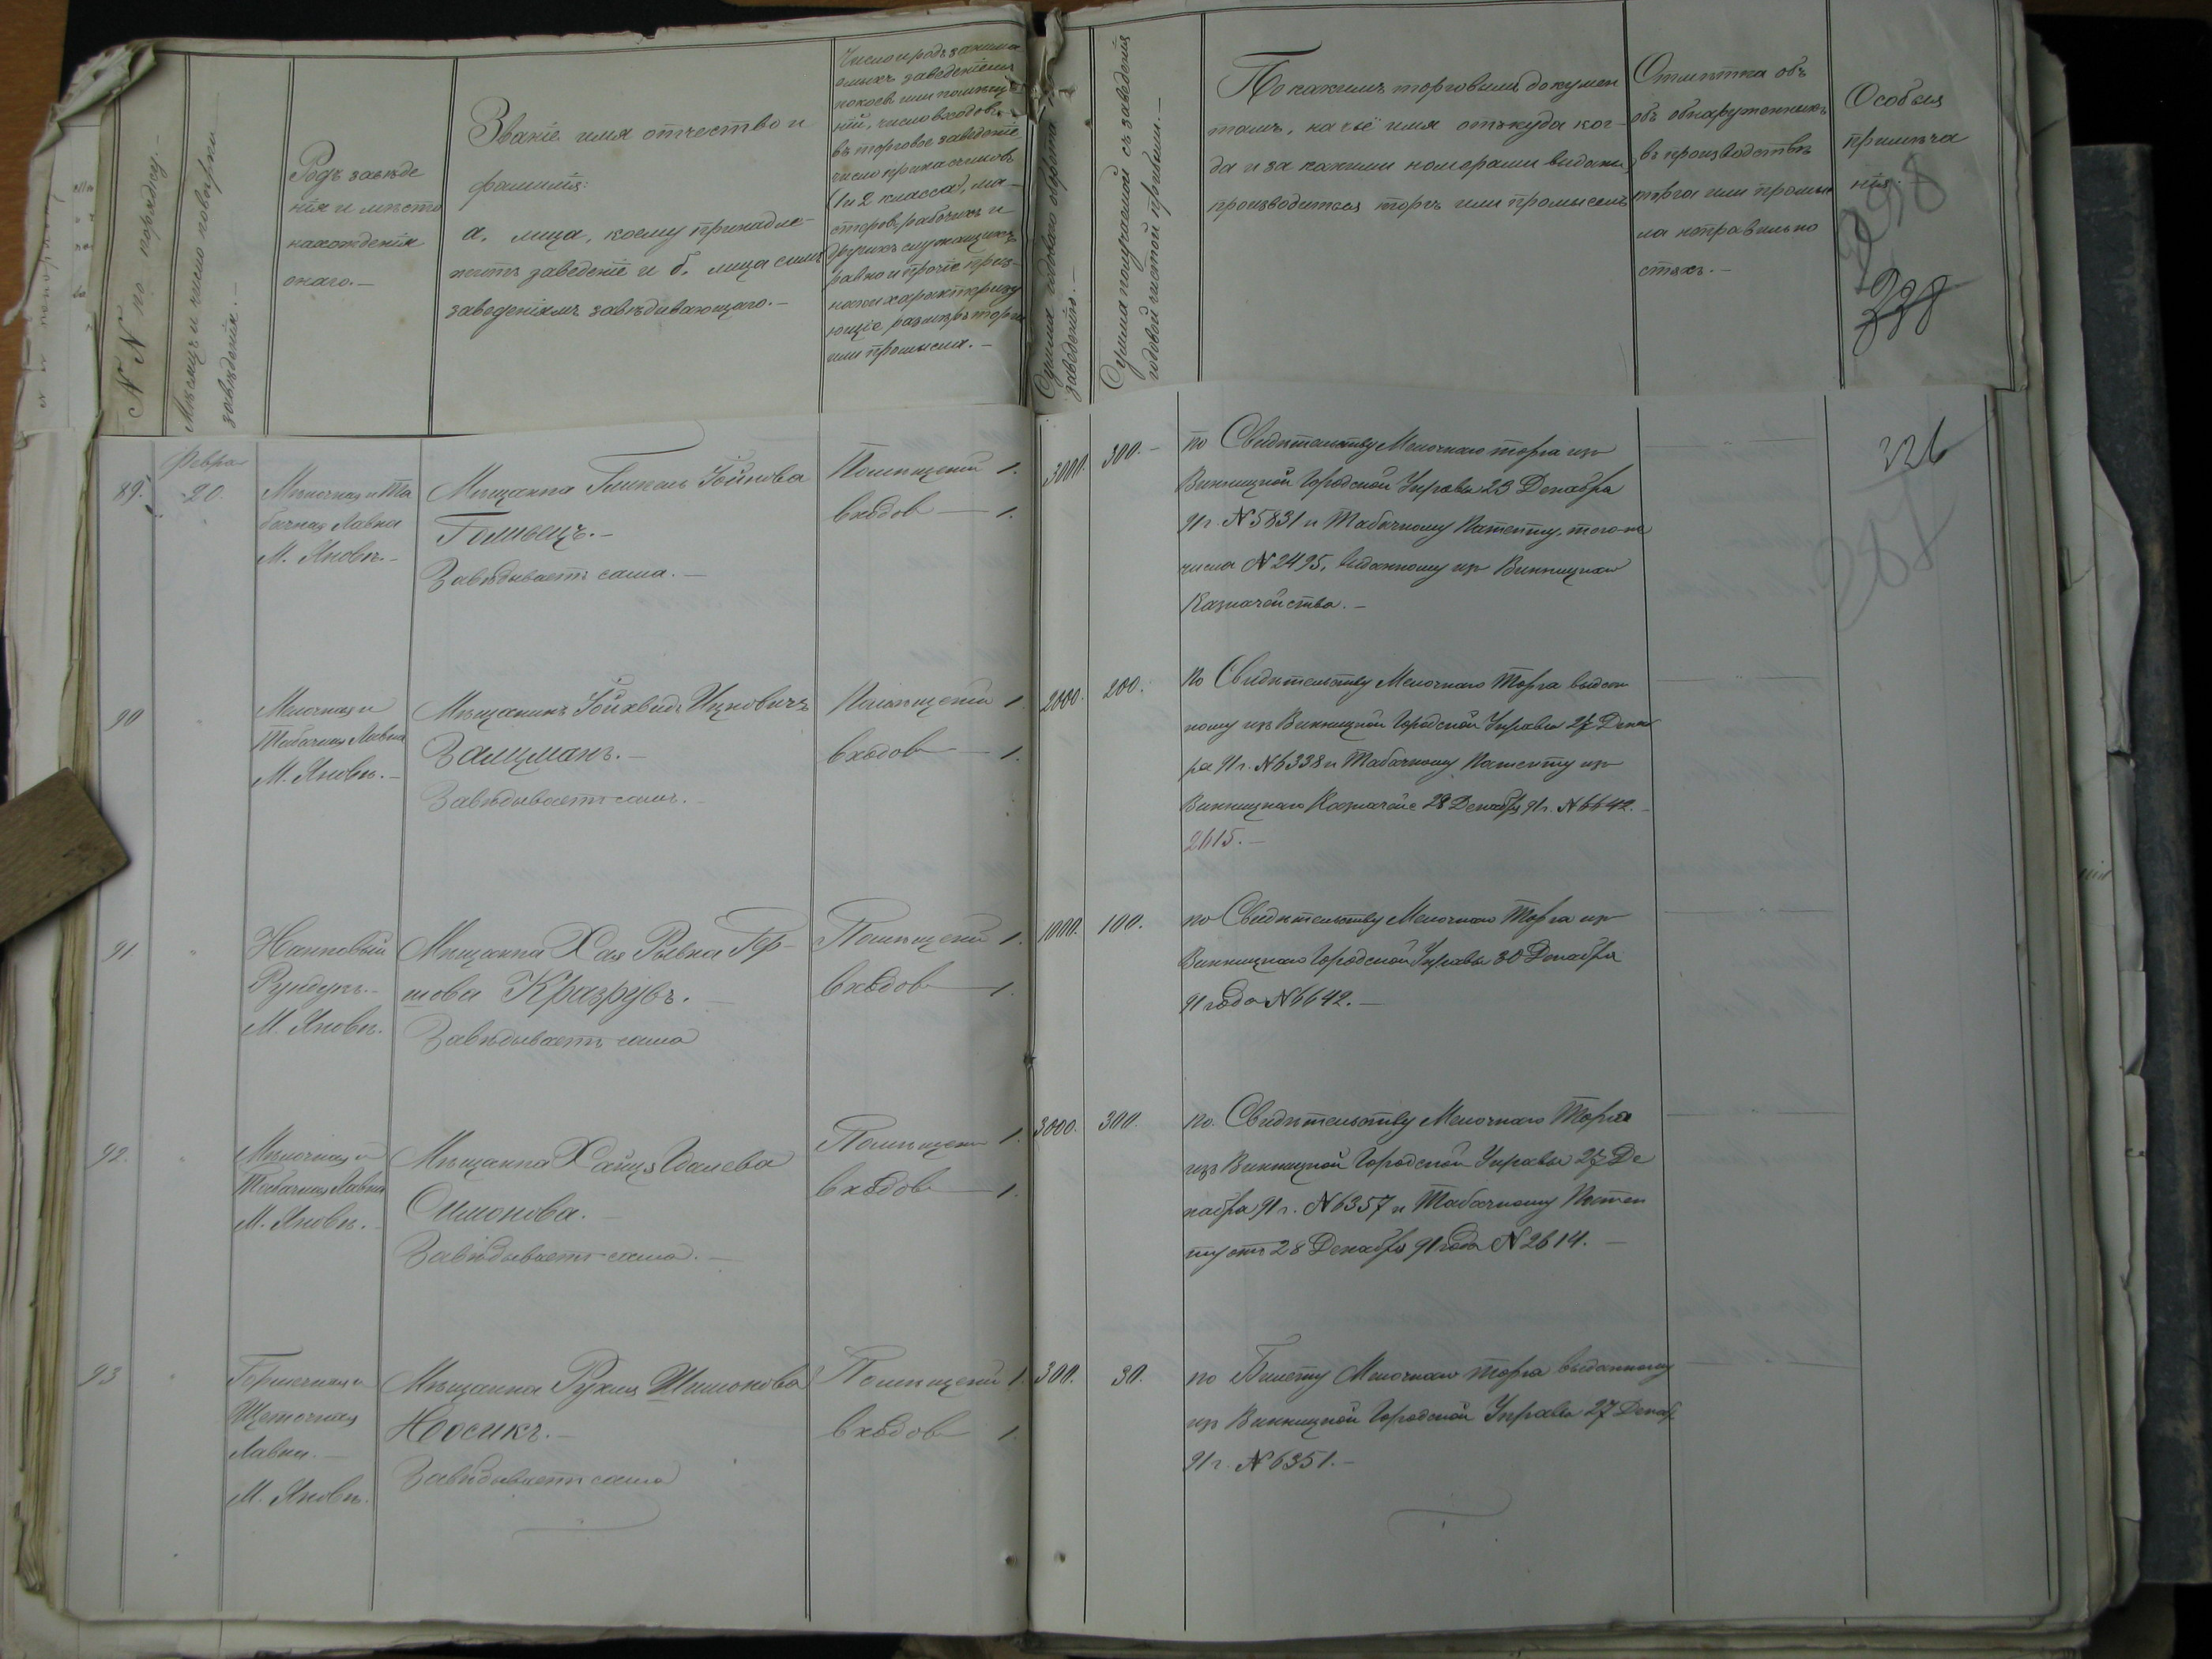 N N по порядку.
Мѣсяцъ и число повѣрки
заведенія.—
Родъ заведе
нія и место
нахожденія
онаго.—
Званіе имя отчество и
фамилія:
а. лица, коему принадле-
житъ заведеніе и б. лица симъ
заведеніямъ завѣдывающаго.—
Число и родъ занима
емыхъ заведеніемъ
покоевъ или помѣще
ній, число входовъ
въ торговое заведеніе
число прикасчиковъ
(1 и 2 класса), ма-
стеровъ, рабочихъ и
другихъ служащихъ
равно и прочіе приз-
наки характеризу
ющіе размѣръ торга
или промысла.—
Сумма годоваго оборота по
заведенію.—
Сумма получаемой съ заведенія
годовой чистой прибыли.—
По какимъ торговымъ докумен
тамъ, на чьё имя откуда ког-
да и за какими номерами выдани
производиться торгъ или промыселъ
Отмѣтка объ
объ обнаруженныхъ
въ производствѣ
торга или промы
сла неправильно
стяхъ.—
Особыя
примѣча
нія.
298
326
Февра
89. 20.
Мѣлочная и Та
бачная Лавка
М. Яновъ.—
Мѣщанка Гликель Йойнова
Голивецъ.—
Завѣдываетъ сама.—
Помѣщеній 1.
входов — 1.
3000. 300.—
по Свидѣтельству Мелочнаго торга изъ
Винницкой Городской Управы 23 Декабря
91 г. N 5831 и Табачному Патенту, того-же
числа N 2495, выданному изъ Винницкаго
Казначейства.—
90
Мелочная и
Табачная Лавка
М. Яновъ.—
Мѣщанинъ Ицковичъ
Залцманъ.—
Завѣдываетъ самъ.—
Помѣщеній 1
входов — 1.
2000. 200.
по Свидѣтельству Мелочнаго Торга выдан
ному изъ Винницкой Городской Управы 27 Декаб
ря 91 г. N 6338 и Табачному Патенту изъ
Винницкаго Казначейс 28 Декабря 91 г. N 6642.—
2615.—
91.
Нанковый
Рундукъ.—
М. Яновъ.
Мѣщанка Хая Рывка Гер-
шова Кразрубъ.—
Завѣдываетъ сама
Помѣщеній 1.
входов — 1.
1000. 100.
по Свидѣтельству Мелочнаго Торга изъ
Винницкаго Городской Управы 30 Декабря
91 года N 6642.—
92.
Мѣлочная и
Табачная Лавка
М. Яновъ.
Мѣщанка Хайця Идалева
Симонова.—
Завѣдываетъ сама.—
Помѣщеній 1.
входов — 1.
3000. 300.
по. Свидѣтельству Мелочнаго Торга
изъ Винницкой Городской Управы 27 Де
кабря 91 г. N 6357 и Табачному Патен
ту отъ 28 Декабря 91 года N 2614.—
93
Горшечная и
Щеточная
Лавки.—
М. Яновъ.
Мѣщанка Рухля Шимонова
Носикъ.—
Завѣдываетъ сама
Помѣщеній 1.
входов 1
300. 30.
по Билету Мелочнаго торга выданному
изъ Винницкой Городской Управы 27 Декаб
91 г. N 6351.—